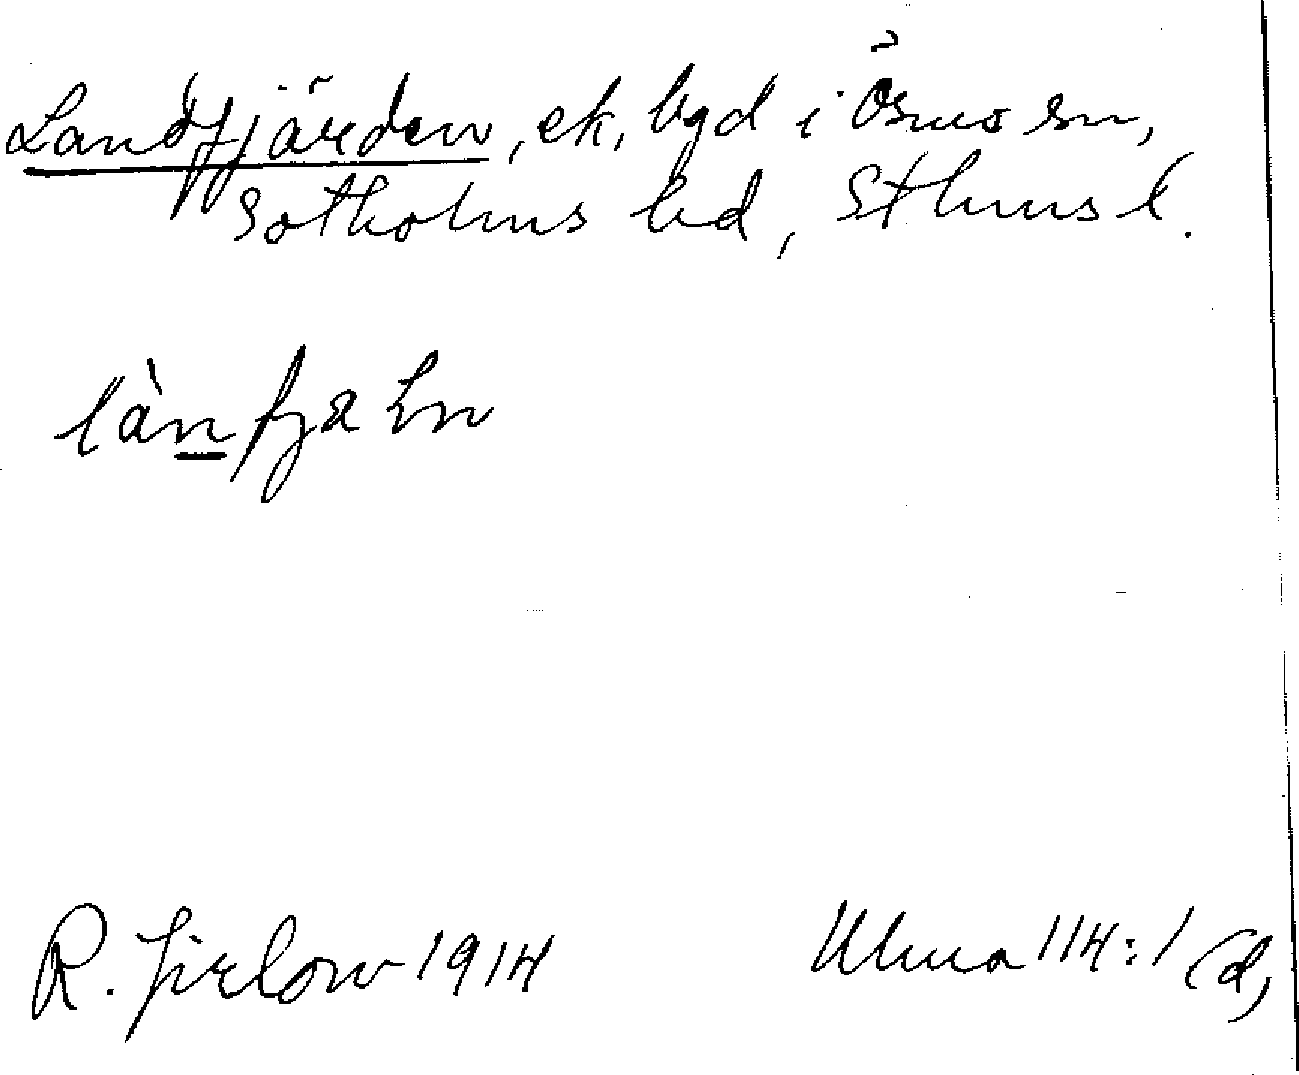 Landfjärden, ek, bgd i Ösmo sn,
Sotholms hd, Sthms l.
lànfjäɭn
R. Jirlow 1914
Ulma 114:1 (d)